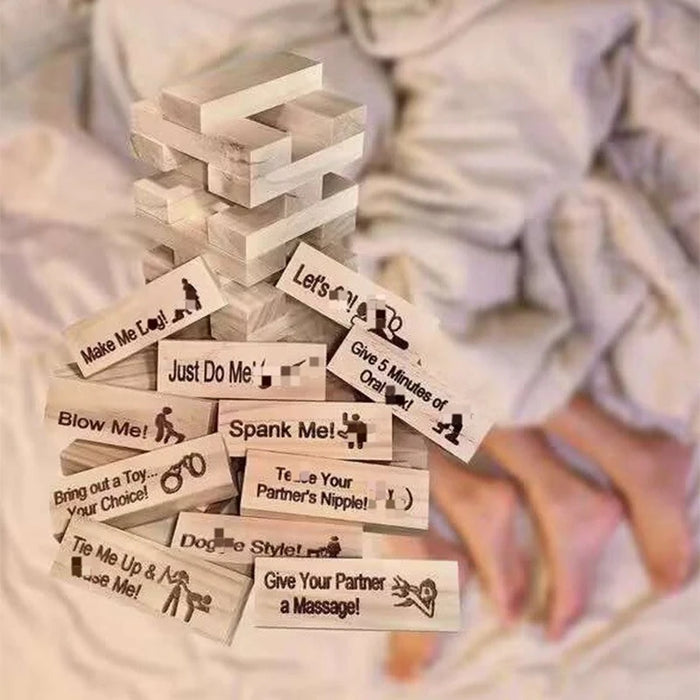 Let's
Make Me
Just Do Me!
Give 5 Minutes of
Oral
Blow Me!
Spank Me!
Bring out a Toy...
Your Choice!
Your
Partner's Nipple!
Style!
Tie Me Up &
Me!
Give Your Partner
a Massage!